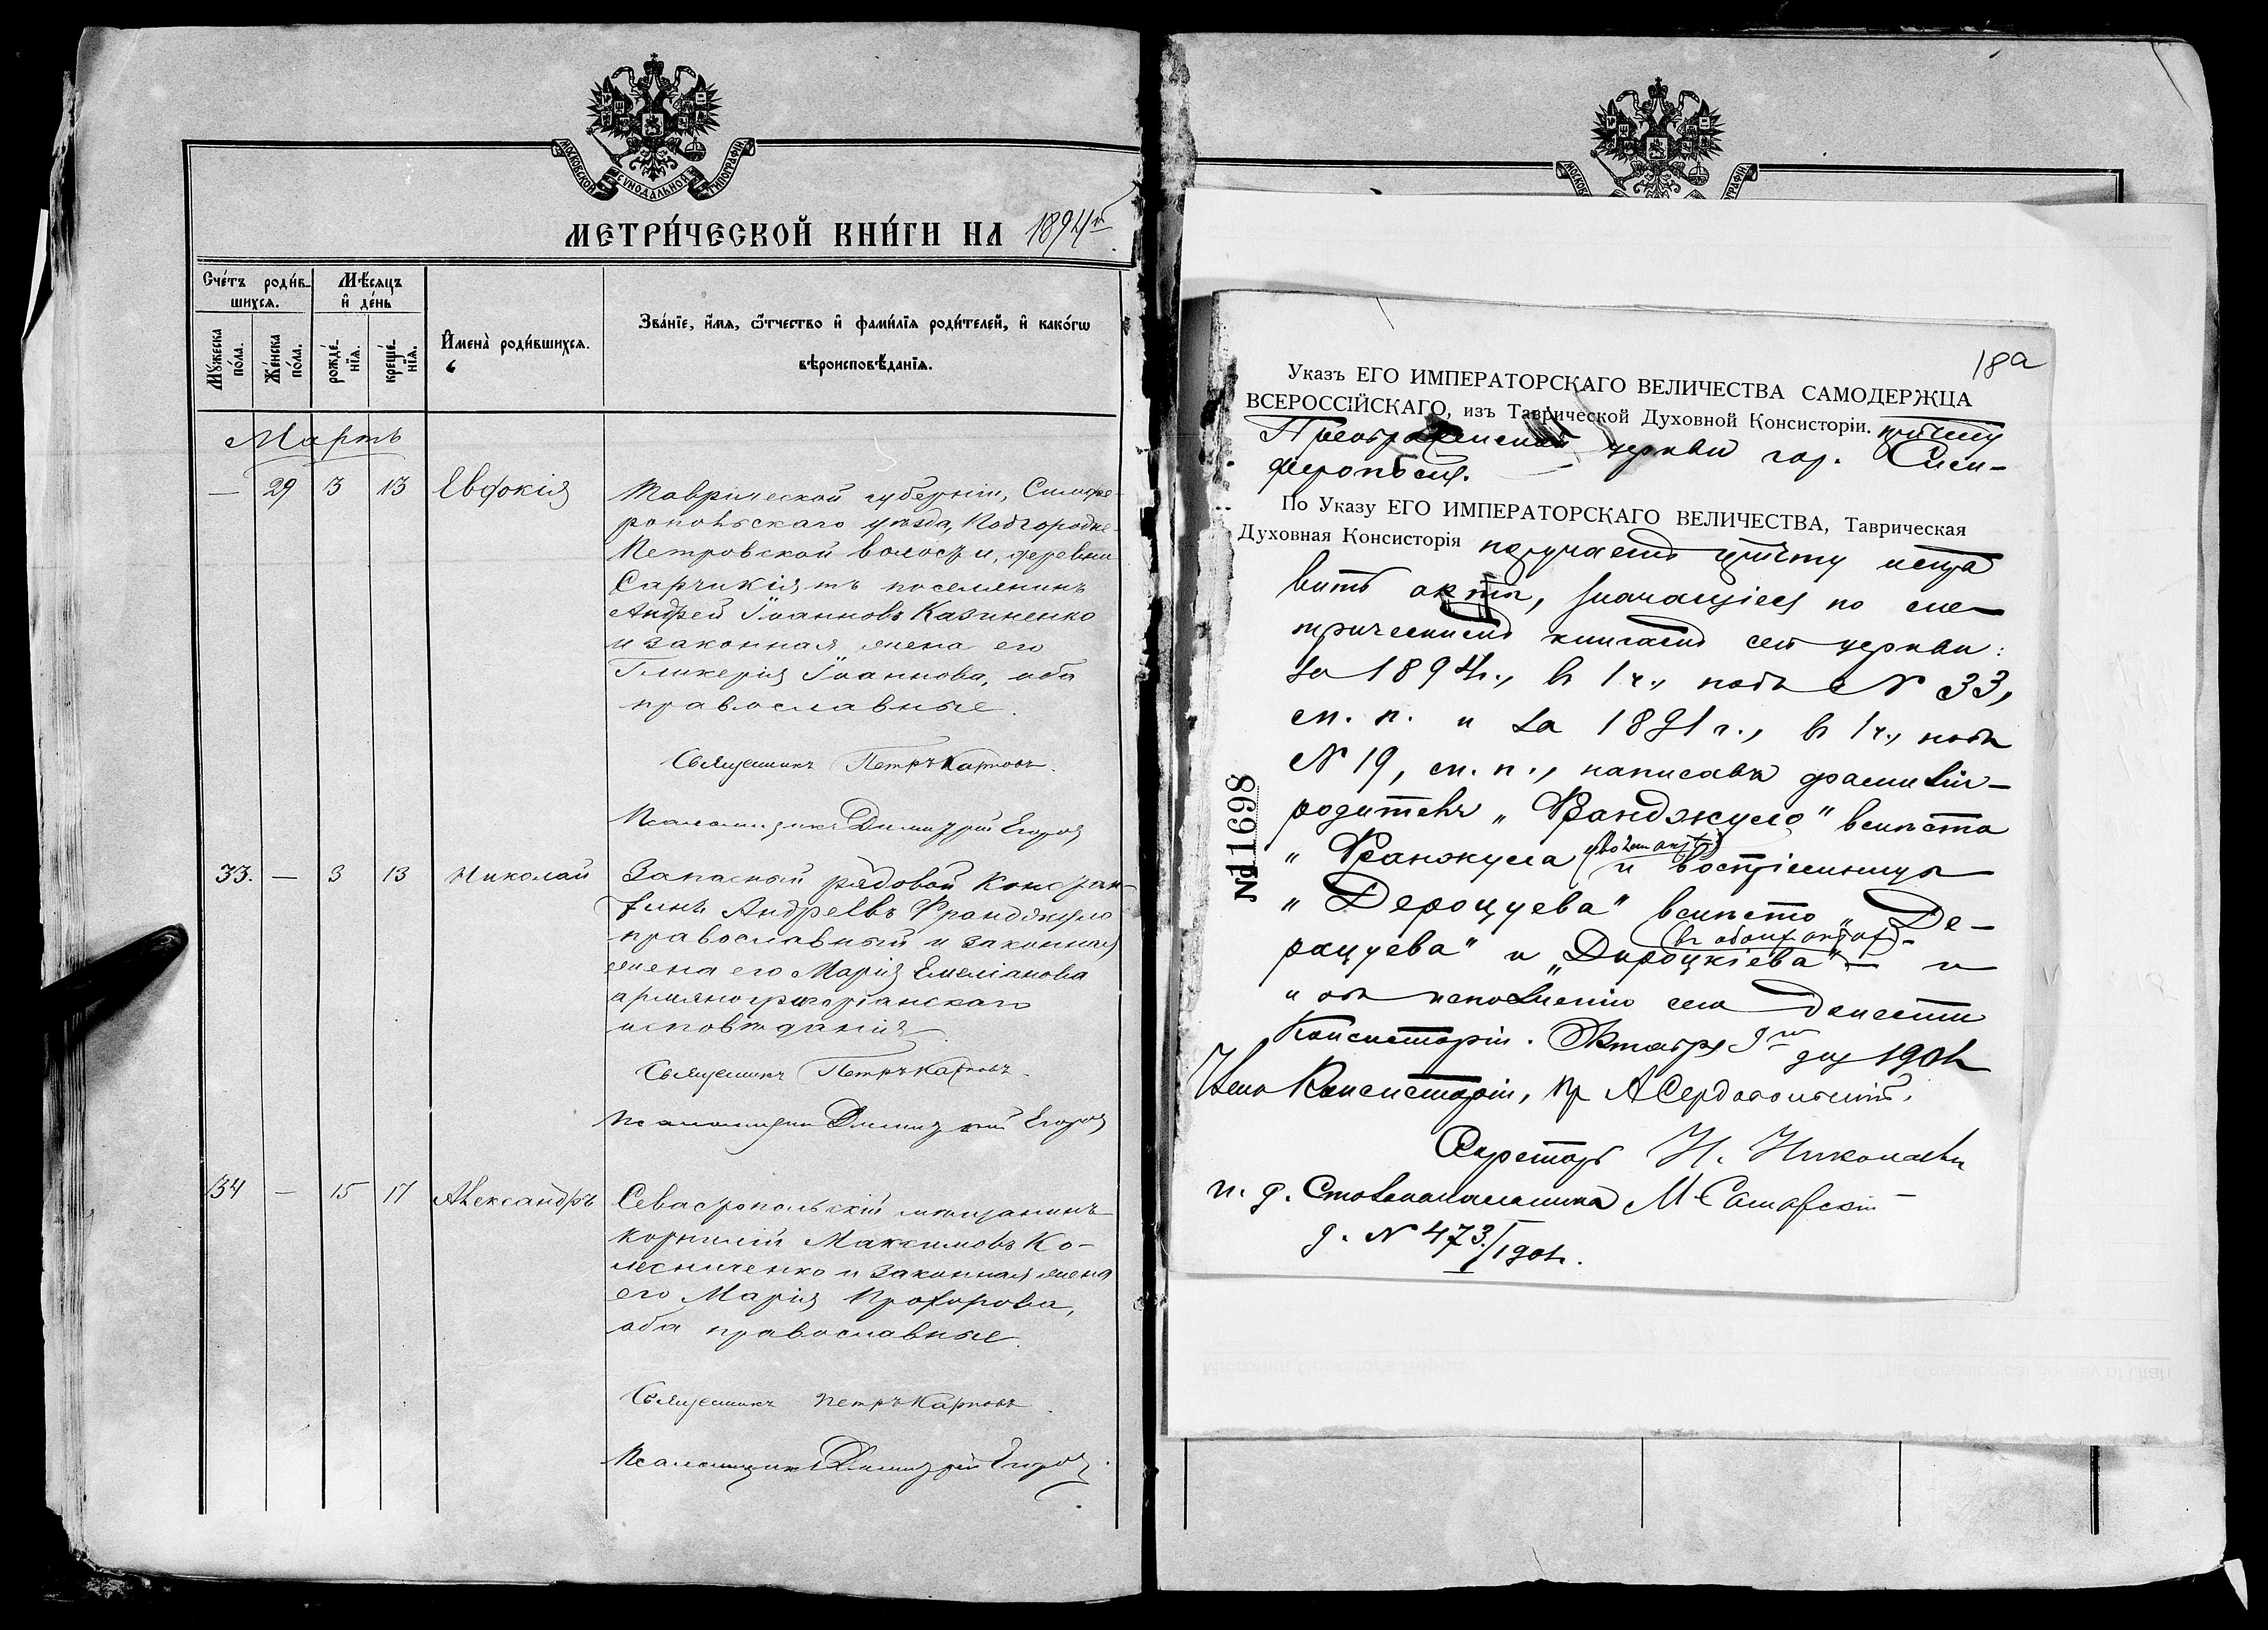 МОСКОВСКОЙ СѴНОДАЛЬНОЙ ТИПОГРАФІИ
МЕТРИ́ЧЕСКОЙ КНИ́ГИ НА 1894й
Сче́тъ роди́в-
шихсѧ.
Мѣ́сѧцъ
и҆ де́нь
Мꙋ́жеска по́ла.
Же́нска по́ла.
рожде́нїѧ.
креще́нїѧ.
И҆мена̀ роди́вшихсѧ.
Зва́нїе, и҆́мѧ, ѻ҆́тчество и҆ фами́лїѧ роди́телей, и҆ како́гѡ
вѣроисповѣ́данїѧ.
Мартъ
— 29 3 13 Евдокія Таврической губерніи, Симфе-
ропольскаго уѣзда, Подгородне-
Петровской волости, деревни
Сарчикіятъ поселянинъ
Андрей Іоанновъ Казиненко
и законная жена его
Гликерія Іоаннова, оба
православные.
Священникъ Петръ Карповъ.
Псаломщикъ Димитрій Егоров
33. — 3 13 Николай Запасный рядовой Констан-
тинъ Андреевъ Франджуло
православный и законная
жена его Марія Емеліанова
армяногригоріанскаго
исповѣданія.
Священникъ Петръ Карповъ.
Псаломщикъ Димитрій Егоров
34 — 15 17 Александръ Севастопольскій мѣщанинъ
Корнилій Максимовъ Ко-
лесниченко и законная жена
его Марія Прохорова,
оба православные.
Священникъ Петръ Карповъ.
Псаломщикъ Димитрій Егоров.
18а
Указъ ЕГО ИМПЕРАТОРСКАГО ВЕЛИЧЕСТВА САМОДЕРЖЦА
ВСЕРОССІЙСКАГО, изъ Таврической Духовной Консисторіи. причту
Преображенской церкви гор. Сим-
ферополя.
По Указу ЕГО ИМПЕРАТОРСКАГО ВЕЛИЧЕСТВА, Таврическая
Духовная Консисторія поручаетъ причту испра
вить акты, значащіеся по ме-
трическимъ книгамъ сей церкви:
за 1894г., в 1 ч., подъ № 33,
м. п. и за 1891 г., в 1 ч., подъ
№ 19, м. п., написавъ фамилію
родителя „Франджуло" вмѣсто
„Фанжула (въ 2м актѣ) и воспріемницы
„Дероцуева" вмѣсто „Де-
рацуева" и „Дироцкіева" (въ обоих актах) — и
и объ исполненіи сего донести
Консисторіи. Октября 9го дня 1901г
Членъ Консисторіи, пр А Сердобольскій,
Секретарь Н. Николаевъ
и. д. Столоначальника М
д. № 473/I 1901г.
№ 11698